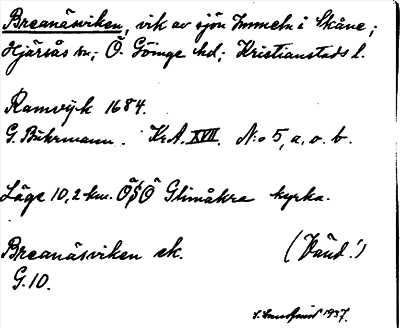 Breanäsviken, vik av sjön Immeln i Skåne;
Hjärsås sn; Ö. Göinge hd; Kristianstads l.
Ramvijk 1684.
G. Buhrmann. Kr.A. XVII. N:o 5, a. o. b.
Läge 10,2 km. ÖSÖ Glimåkra kyrka.
Breanäsviken ek. (Känd!)
G.10.
1937.